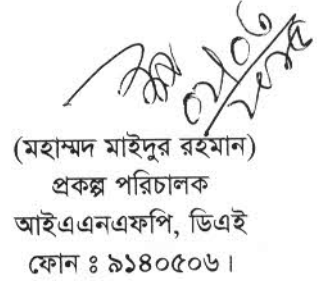 (মহাম্মদ মাইদুর রহমান)
প্রকল্প পরিচালক
আইএএনএফপি, ডিএই
ফোন ঃ ৯১৪০৫০৬।